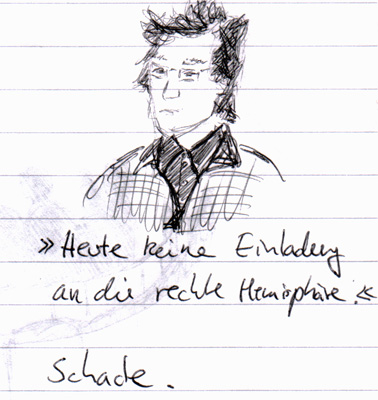 »Heute keine Einladung
an die rechte Hemisphäre.«
Schade.